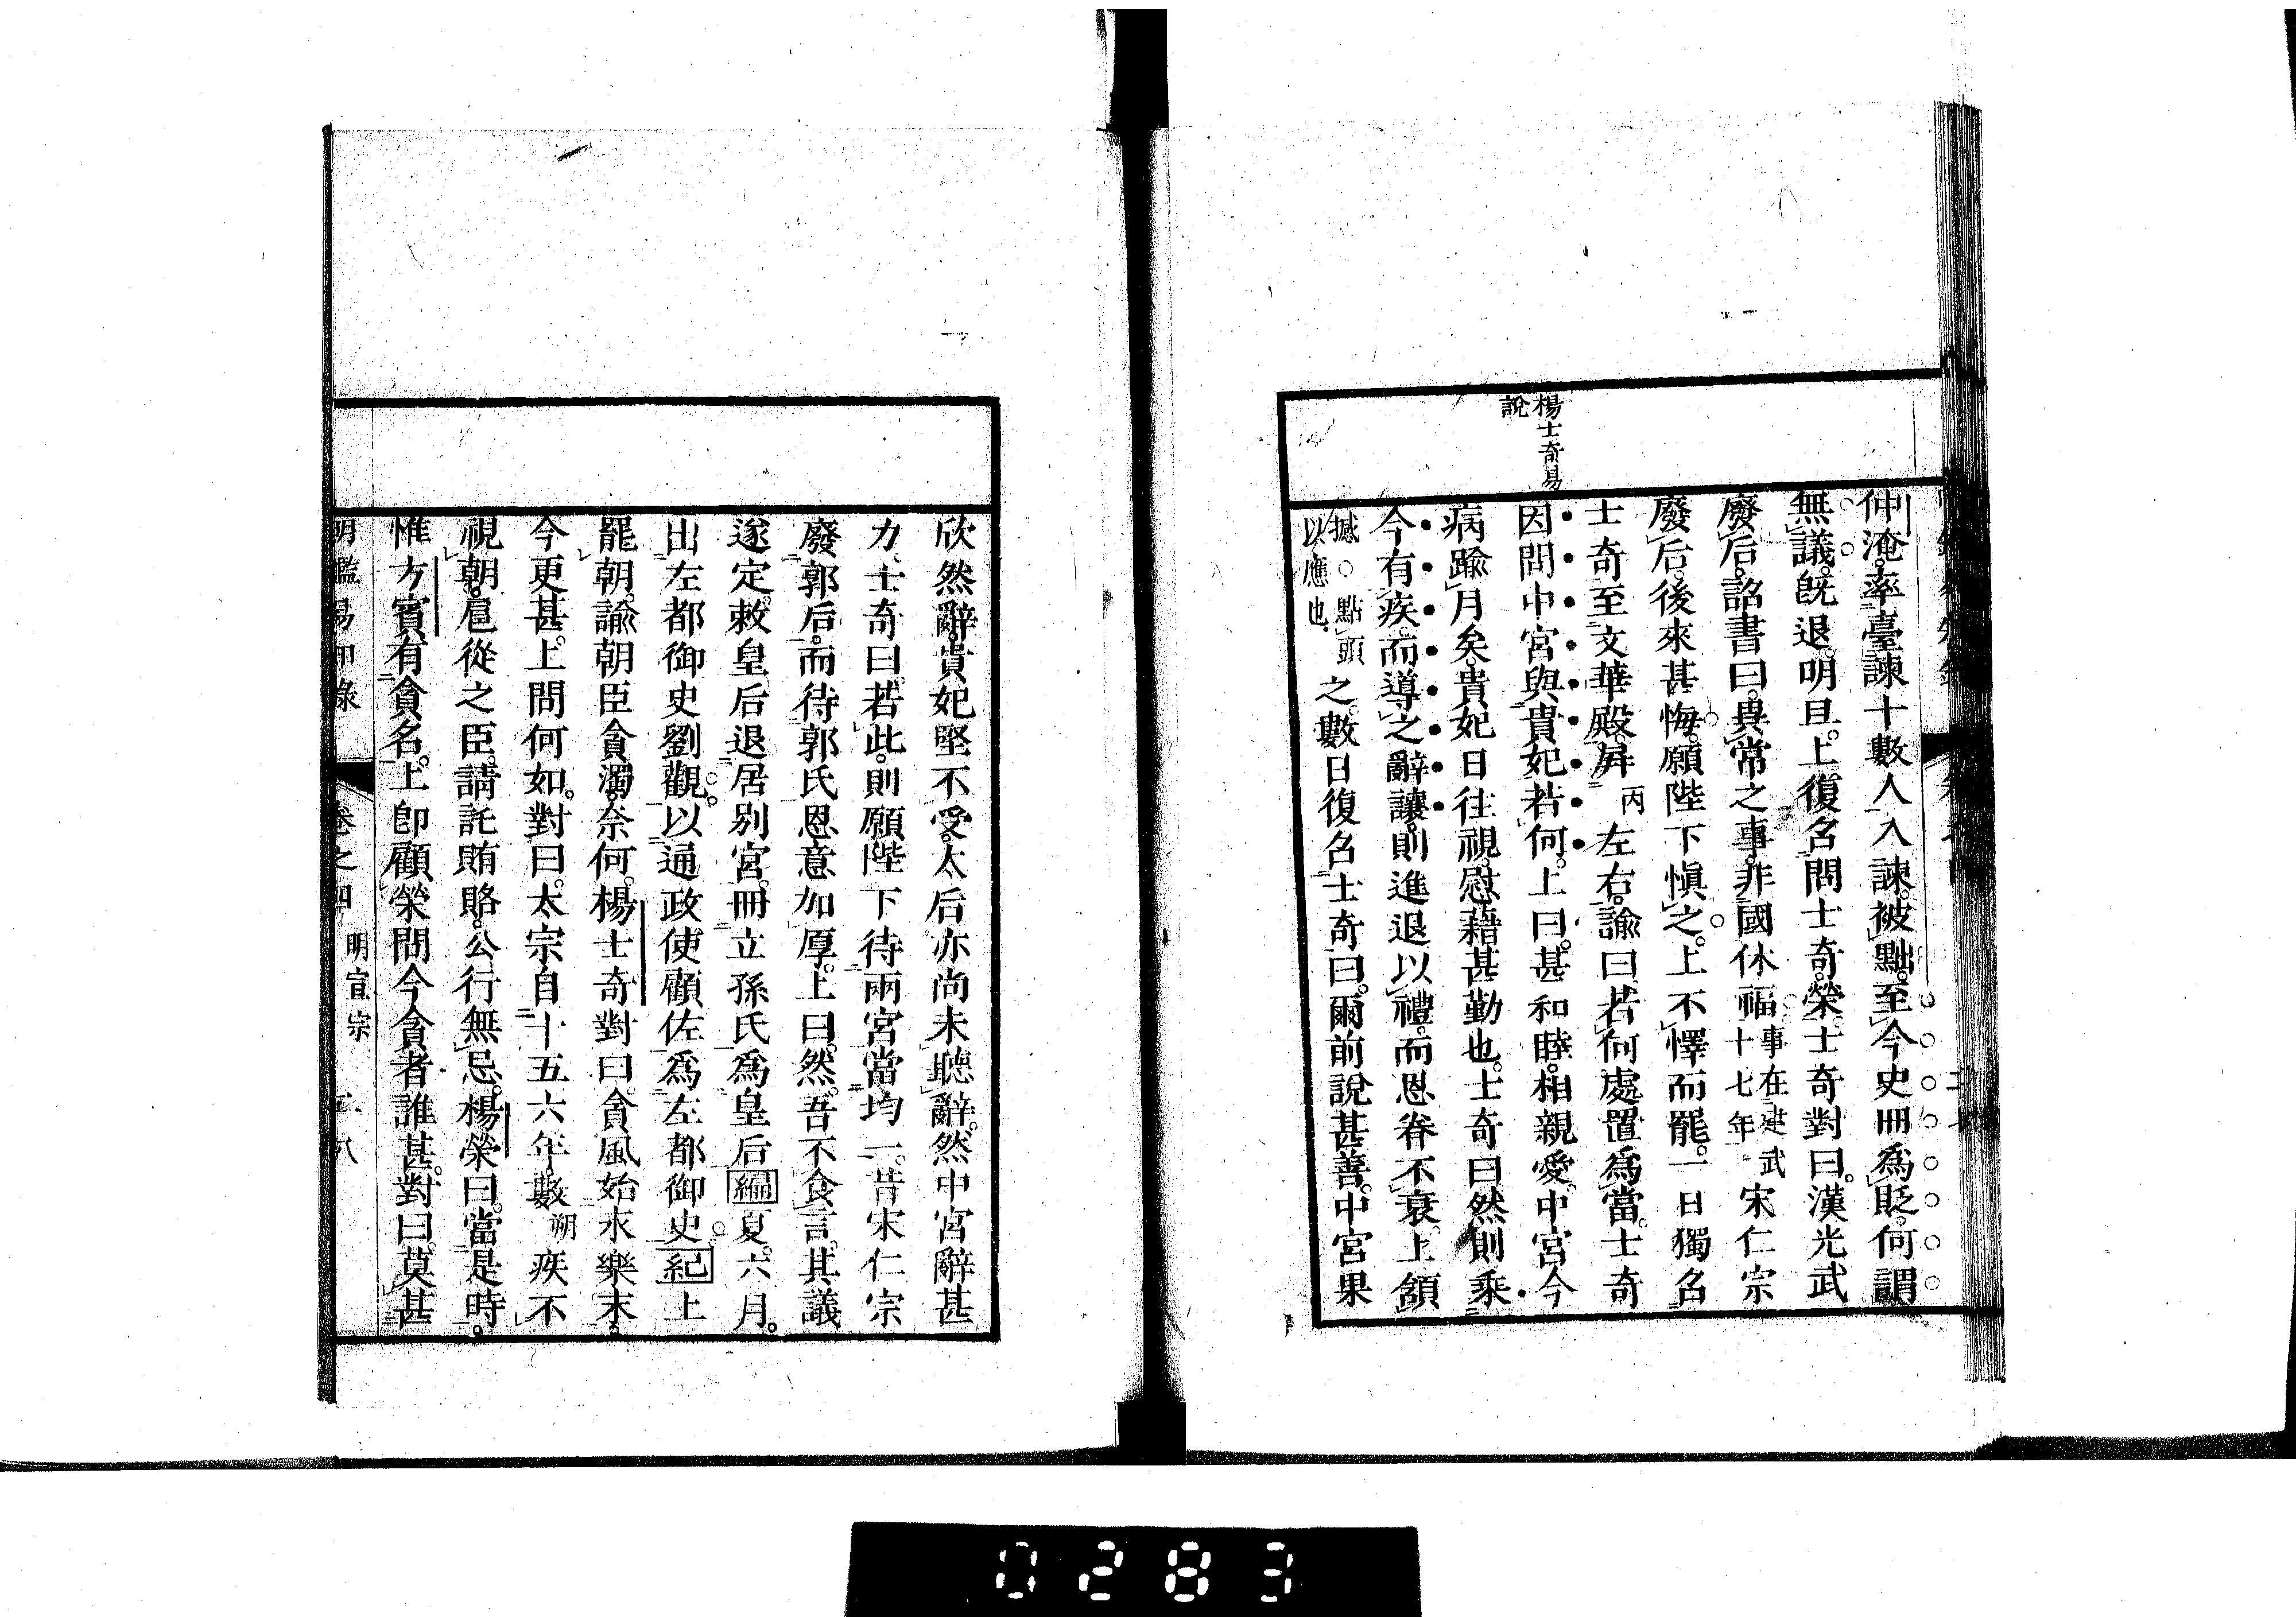 楊士奇易
說
仲淹。率臺諫十數人入諫。被黜。至今史冊爲貶。何謂
無議。旣退。明旦。上復召問士奇榮。士奇對曰。漢光武
廢后。詔書曰。異常之事。非國休福。事在建武十七年宋仁宗
廢后。後來甚悔。願陛下愼之。上不懌而罷。一日獨召
士奇至文華殿。屏丙左右。諭曰。若何處置爲當。士奇
因問中宮與貴妃若何。上曰。甚和睦。相親愛。中宮今
病踰月矣。貴妃日往視。慰藉甚勤也。士奇曰然則乘
今有疾。而導之辭讓。則進退以禮。而恩眷不衰。上頷
撼○點頭以應也。之。數日復召士奇曰。爾前說甚善。中宮果
欣然辭。貴妃堅不受。太后亦尚未聽辭。然中宮辭甚
力。士奇曰。若此。則願陛下待兩宮當均一。昔宋仁宗
廢郭后。而待郭氏恩意加厚。上曰。然。吾不食言。其議
遂定。敕皇后退居別宮。冊立孫氏爲皇后編夏。六月。
出左都御史劉觀。以通政使顧佐爲左都御史紀上
罷朝。諭朝臣貪濁。奈何。楊士奇對曰貪風始永樂末。
今更甚。上問何如。對曰。太宗自十五六年。數朔疾不
視朝。扈從之臣。請託賄賂。公行無忌。楊榮曰。當是時。
惟方賓有貪名。上卽顧榮問今貪者誰甚。對曰。莫甚
明鑑易知錄 卷之四 明宣宗 八